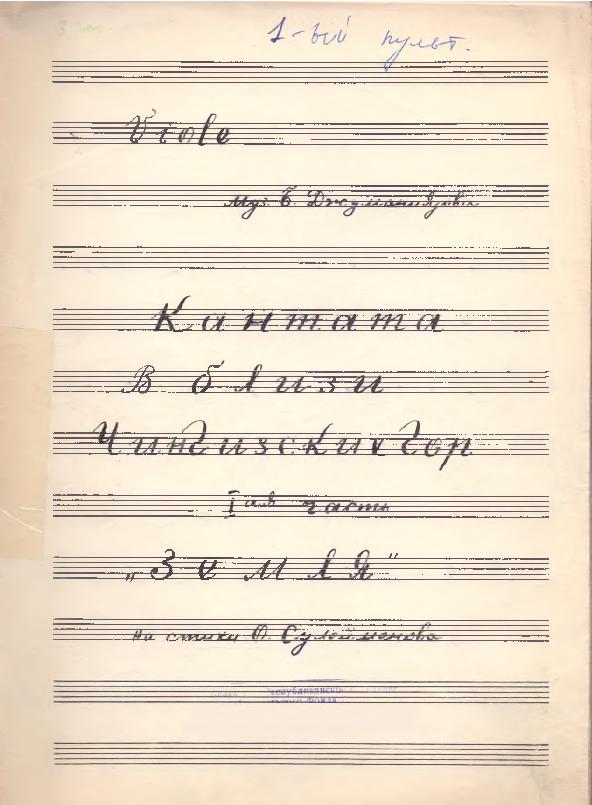 1-ый пульт.
Viole
муз. Б. Джуманиязова
Кантата
Вблизи
Чингизских гор
I ая часть
„Земля"
на стихи О. Сулейменова
Республиканское
Фонда